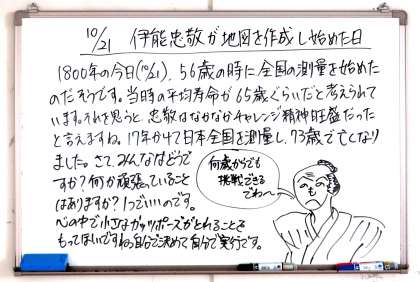 10/21 伊能忠敬が地図を作成し始めた日
1800年の今日(10/21)、56歳の時に全国の測量を始めた
のだそうです。当時の平均寿命が65歳ぐらいだと考えられて
います。それを思うと、忠敬はなかなかチャレンジ精神旺盛だった
と言えますね。17年かけて日本全国を測量し、73歳で亡くなり
ました。さて、みんなはどうで
すか?何か頑張っていること
はありますか?1つでいいのです。
心の中で小さなガッツポーズがとれることを
もってほしいですね。自分で決めて自分で実行です。
何歳からでも
挑戦できる
でねぇ〜